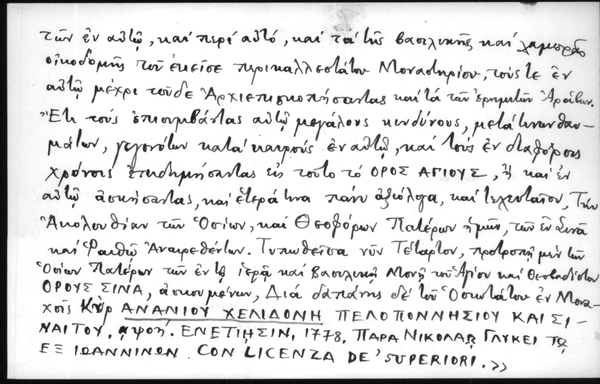 τῶν ἐν αὐτῷ, καὶ περὶ αὐτό, καὶ τὰ τῆς βασιλικῆς καὶ λαμπρᾶς
οἰκοδομῆς τοῦ ἐκεῖσε περικαλλεστάτου Μοναστηρίου, τούς τε ἐν
αὐτῷ μέχρι τοῦδε Ἀρχιεπισκοπήσαντας καὶ τὰ τῶν ἐρημιτῶν Ἀράβων.
Ἔτι τοὺς ἐπισυμβάντας αὐτῷ μεγάλους κινδύνους, μετά τινων θαυ-
μάτων, γεγονότων κατὰ καιροὺς ἐν αὐτῷ, καὶ τοὺς ἐν διαφόροις
χρόνοις ἐπιδημήσαντας εἰς τοῦτο τὸ ΟΡΟΣ ΑΓΙΟΥΣ, ἢ καὶ ἐν
αὐτῷ ἀσκήσαντας, καὶ ἕτερά τινα πάνυ ἀξιόλογα, καὶ τελευταῖον, Τὴν
Ἀκολουθίαν τῶν Ὁσίων, καὶ Θεοφόρων Πατέρων ἡμῶν, τῶν ἐν Σινᾷ
καὶ Ῥαϊθῷ Ἀναιρεθέντων. Τυπωθεῖσα νῦν Τέταρτον, προτροπῇ μὲν τῶν
Ὁσίων Πατέρων τῶν ἐν τῇ ἱερᾷ καὶ Βασιλικῇ Μονῇ τοῦ Ἁγίου καὶ Θεοβαδίστου
ΟΡΟΥΣ ΣΙΝΑ, ἀσκουμένων, Διὰ δαπάνης δὲ τοῦ Ὁσιωτάτου ἐν Μονα-
χοῖς Κὺρ ΑΝΑΝΙΟΥ ΧΕΛΙΔΟΝΗ ΠΕΛΟΠΟΝΝΗΣΙΟΥ ΚΑΙ ΣΙ-
ΝΑΙΤΟΥ, αψοή. ΕΝΕΤΙΗΣΙΝ, 1778. ΠΑΡΑ ΝΙΚΟΛΑΩ ΓΛΥΚΕΙ ΤΩ
ΕΞ ΙΩΑΝΝΙΝΩΝ. CON LICENZA DE' SUPERIORI.»